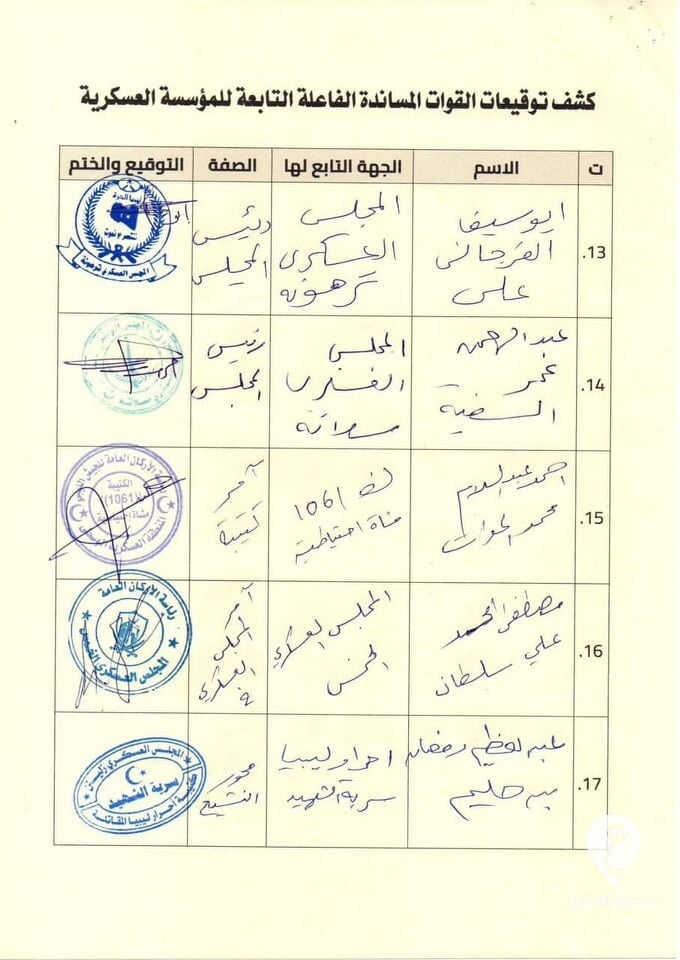 كشف توقيعات القوات المساندة الفاعلة التابعة للمؤسسة العسكرية
ت الاسم الجهة التابع لها الصفة التوقيع والختم
13. ابوسيف المجلس رئيس
الفرجاني العسكري المجلس
علي ترهونة
ليبيا الحرة
المجلس العسكري ترهونة
14. عبدالرحمن المجلس رئيس
عمر العسكري المجلس
مسلاته
15. احمد عبدالسلام 1061 آمر
محمد مشاة احتياطية كتيبة
رئاسة الأركان العامة للجيش الليبي
الكتيبة
(1061)
مشاة احتياطية
المنطقة العسكرية
16. مصطفى المجلس العسكري آمر
علي سلطان الخمس المجلس
العسكري
رئاسة الأركان العامة
المجلس العسكري الخمس
17. رمضان احرار ليبيا محور
سرية الشهيد
المجلس العسكري زليتن
سرية الشهيد
كتيبة أحرار ليبيا المقاتلة